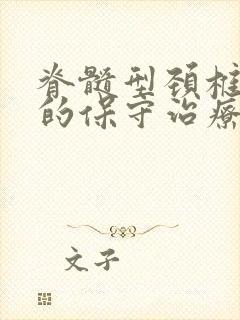 脊髓型颈椎
的保守治疗
文子